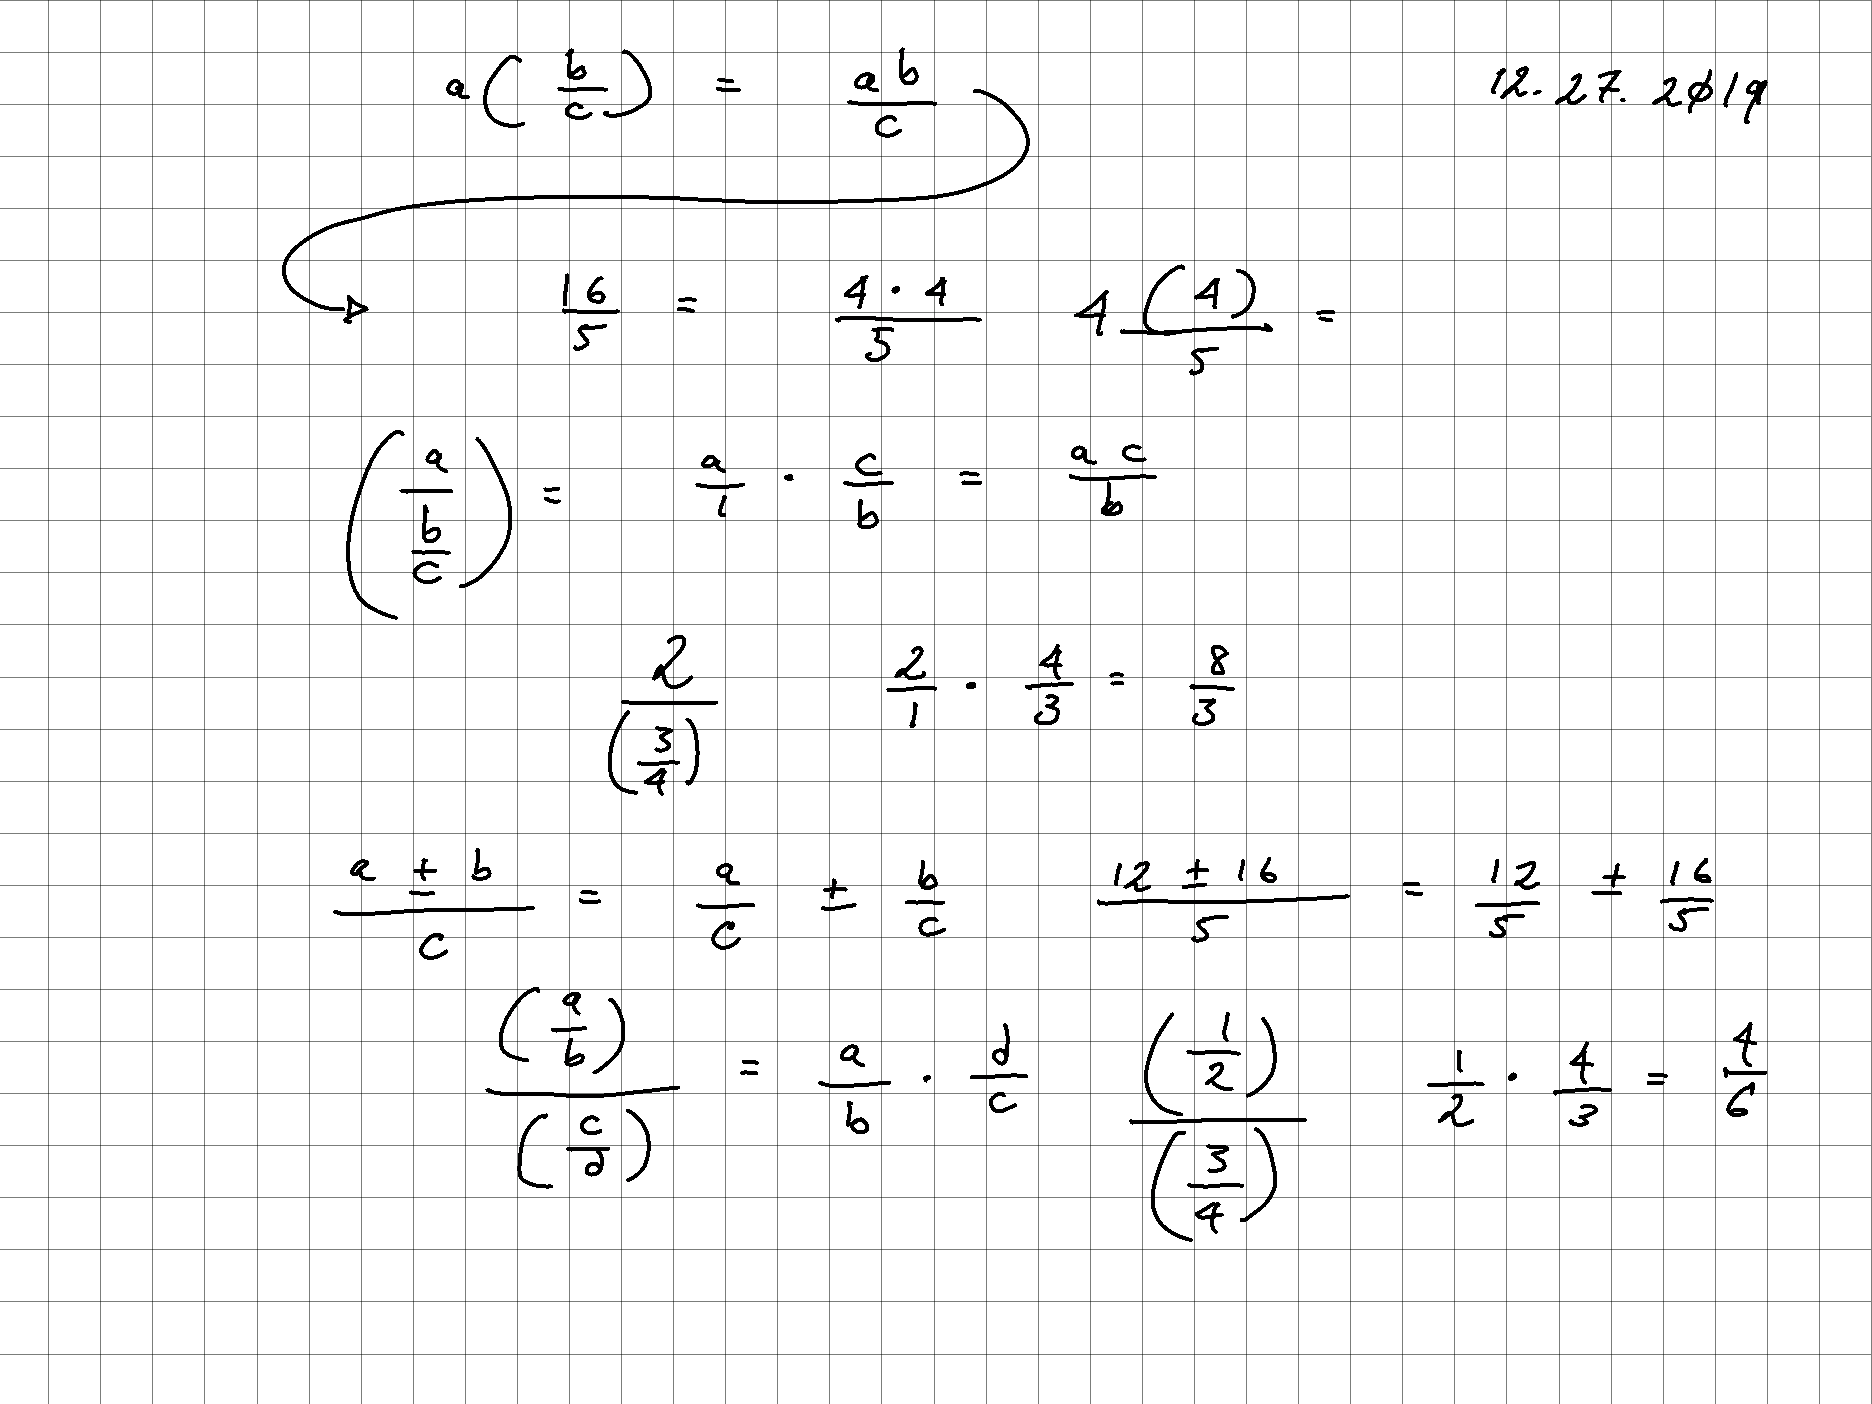 a(b/c) = ab/c 12.27.2019
16/5 = 4·4/5 4(4)/5 =
(a/(b/c)) = a/1 · c/b = ac/b
2/(3/4) 2/1 · 4/3 = 8/3
(a ± b)/c = a/c ± b/c (12 ± 16)/5 = 12/5 ± 16/5
(a/b)/(c/d) = a/b · d/c (1/2)/(3/4) 1/2 · 4/3 = 4/6